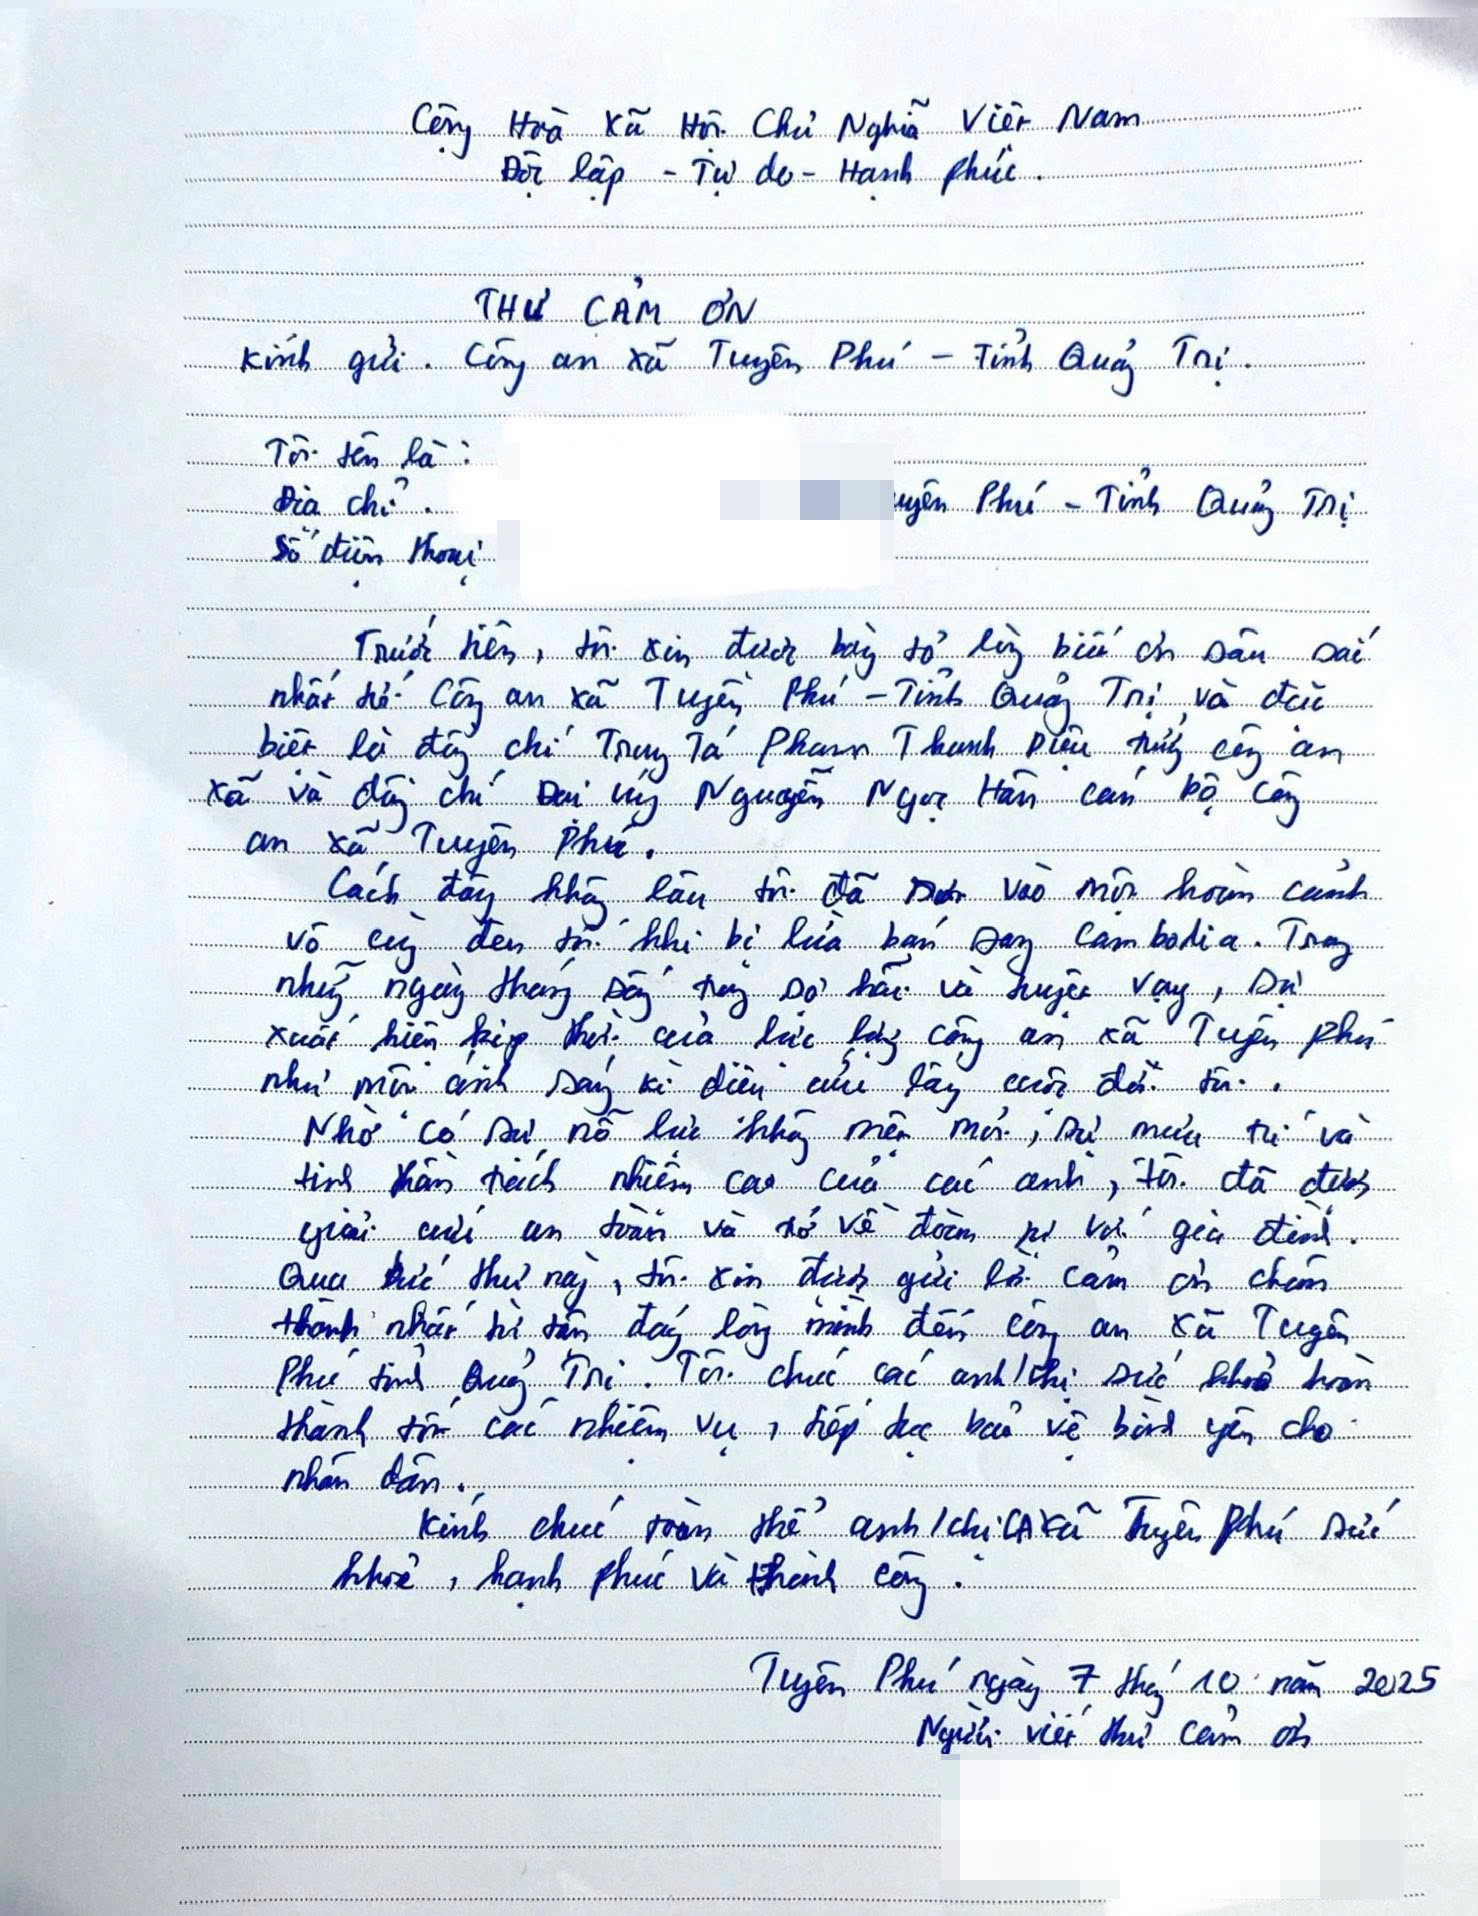 Cộng Hoà Xã Hội Chủ Nghĩa Việt Nam
Độc lập - Tự do - Hạnh phúc.
THƯ CẢM ƠN
Kính gửi. Công an xã Tuyên Phú - Tỉnh Quảng Trị.
Tôi tên là:
Địa chỉ. uyên Phú - Tỉnh Quảng Trị
Số điện thoại
Trước tiên, tôi xin được bày tỏ lòng biết ơn sâu sắc
nhất tới Công an xã Tuyên Phú - Tỉnh Quảng Trị, và đặc
biệt là đồng chí Trung Tá Phạm Thanh Diệu trưởng công an
xã và đồng chí Đại úy Nguyễn Ngọc Hân cán bộ công
an xã Tuyên Phú.
Cách đây không lâu tôi đã vào một hoàn cảnh
vô cùng đen tối khi bị lừa bán sang cambodia. Trong
những ngày tháng sống trong sợ hãi và tuyệt vọng, sự
xuất hiện kịp thời của lực lượng công an xã Tuyên Phú
như một ánh sáng kì diệu cứu lấy cuộc đời tôi.
Nhờ có sự nỗ lực không mệt mỏi, sự mưu trí và
tinh thần trách nhiệm cao của các anh, tôi đã được
giải cứu an toàn và trở về đoàn tụ với gia đình.
Qua bức thư này, tôi xin được gửi lời cảm ơn chân
thành nhất từ tận đáy lòng mình đến công an xã Tuyên
Phú tỉnh Quảng Trị. Tôi chúc các anh/chị sức khoẻ hoàn
thành tốt các nhiệm vụ, tiếp tục bảo vệ bình yên cho
nhân dân.
Kính chúc toàn thể anh/chị CA xã Tuyên Phú sức
khoẻ, hạnh phúc và thành công.
Tuyên Phú ngày 7 tháng 10 năm 2025
Người viết thư cảm ơn